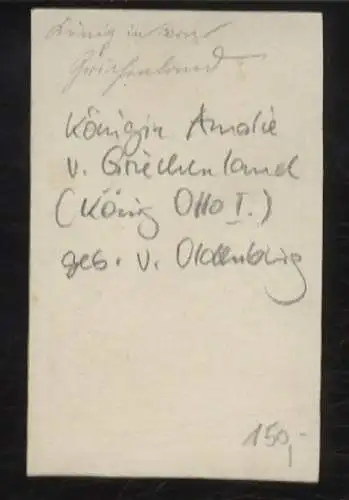 Königin von
Griechenland
Königin Amalie
v. Griechenland
(König Otto I.)
geb. v. Oldenburg
150,-